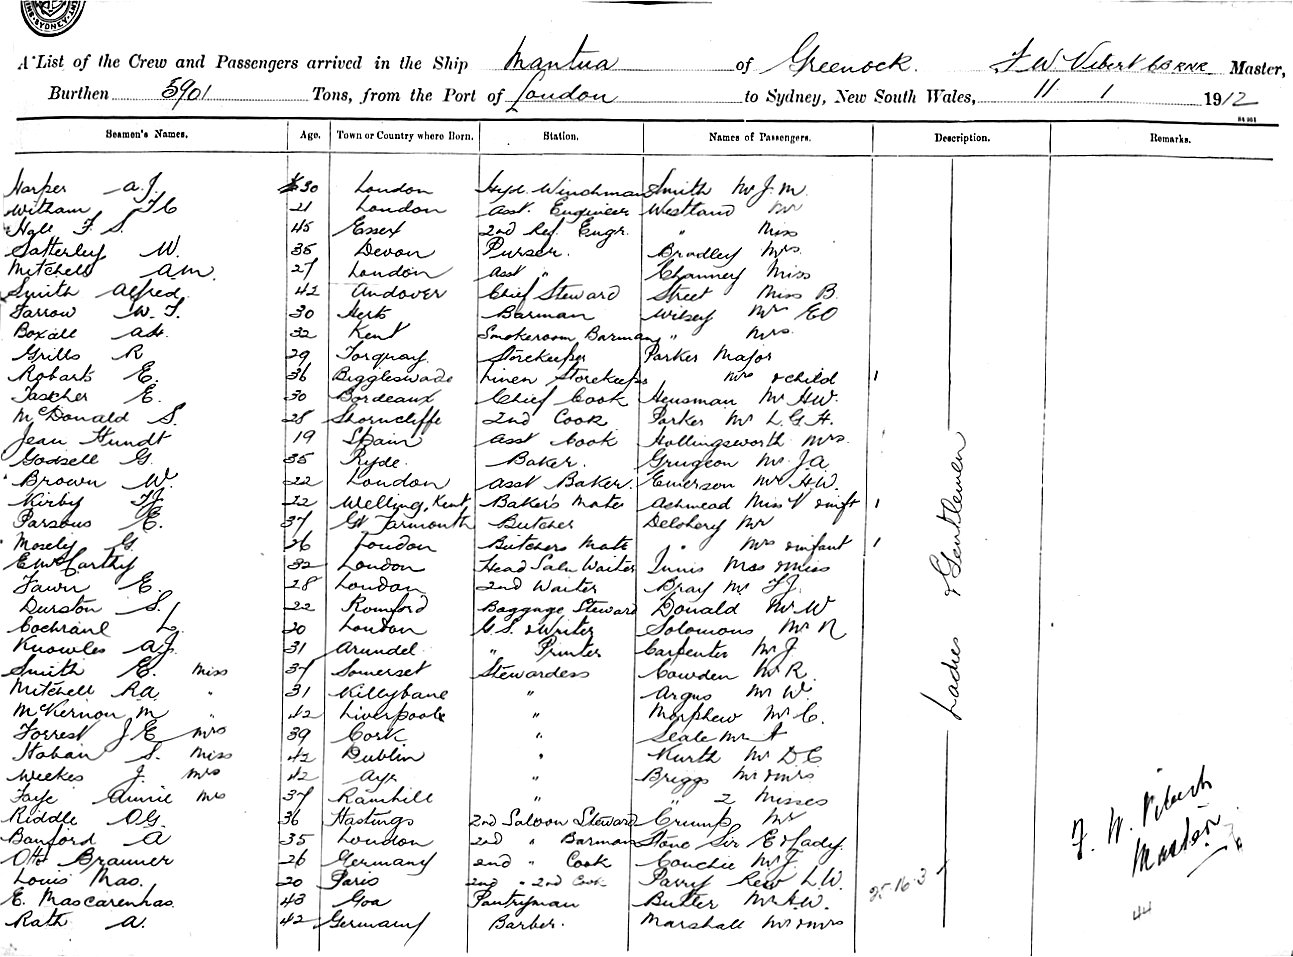 SYDNEY
A List of the Crew and Passengers arrived in the Ship Mantua of Greenock. F W Vibert C.B. RNR Master,
Burthen 5901 Tons, from the Port of London to Sydney, New South Wales, 11 1 1912
Seamen's Names. Age. Town or Country where Born. Station. Names of Passengers. Description. Remarks.
Harper A.J. 30 London Hyd. Winchman Smith Mr J.M.
Witham 21 London Asst. Engineer Westland Mr
F. S. 45 Essex 2nd Ref. Engr. " Miss
Satterley W. 35 Devon Purser. Bradley Mrs.
Mitchell A M. 27 London Asst " Channey Miss
Smith Alfred 42 Andover Chief Steward Street Miss B.
Farrow W. F. 30 Herts Barman Wilsey Mr E O
Boxall A H. 32 Kent Smokeroom Barman " Mrs.
Grills R 29 Torquay. Storekeeper Parker Major
Robarts E. 36 Biggleswade Linen Storekeeper Mrs & child 1
Tascher E. 30 Bordeaux Chief Cook Heusman Mr H W.
McDonald S. 25 Shorncliffe 2nd Cook Parker Mr L. G. H.
Jean Hundt 19 Spain Asst Cook Hollingsworth Mrs.
Godsell G. 35 Ryde. Baker. Grugeon Mr J A
Brown W. 22 London Asst Baker. Emerson Mr H W.
Kirby 22 Welling, Kent Baker's Mate Ashmead Miss V & inft 1
Parsons E. 37 Gt Yarmouth Butcher Delohery Mr
Mosely G. 26 London Butchers Mate " Mrs & infant 1
E McCarthy 32 London Head Saln Waiter Innis Mrs & Miss
Fawn E. 28 London 2nd Waiter Bray Mr F J.
Durston S. 22 Romford Baggage Steward Donald Mr W
Cochrane L. 20 London G.S. & Writer Solomons Mr N
Knowles A J. 31 Arundel " Printer Carpenter Mr J
Smith E. Miss 37 Somerset Stewardess Cowden Mr R.
Mitchell R A " 31 Killybane " Argus Mr W.
McKernon M " 42 Liverpool " Morphew Mr C.
Forrest J E Mrs 39 Cork " Seale Mr A
Hoban S. Miss 42 Dublin " Kurth Mr D C
Weekes J. Mrs 42 Ayr " Briggs Mr & Mrs
Faye Annie Mrs 37 Rainhill " " 2 Misses
Riddle O G. 36 Hastings 2nd Saloon Steward Crump Mr
Banford A 35 London 2nd " Barman Stone Sir E & Lady.
Otto Brauner 26 Germany 2nd " Cook Couchie Mr J.
Louis Mas. 20 Paris 2nd " 2nd Cook Parry Rev L W.
E. Mascarenhas. 43 Goa Pantryman Butler Mr A W.
Rath A. 42 Germany Barber. Marshall Mr & Mrs
Ladies & Gentlemen
25-16-3
F. W. Vibert
Master
44